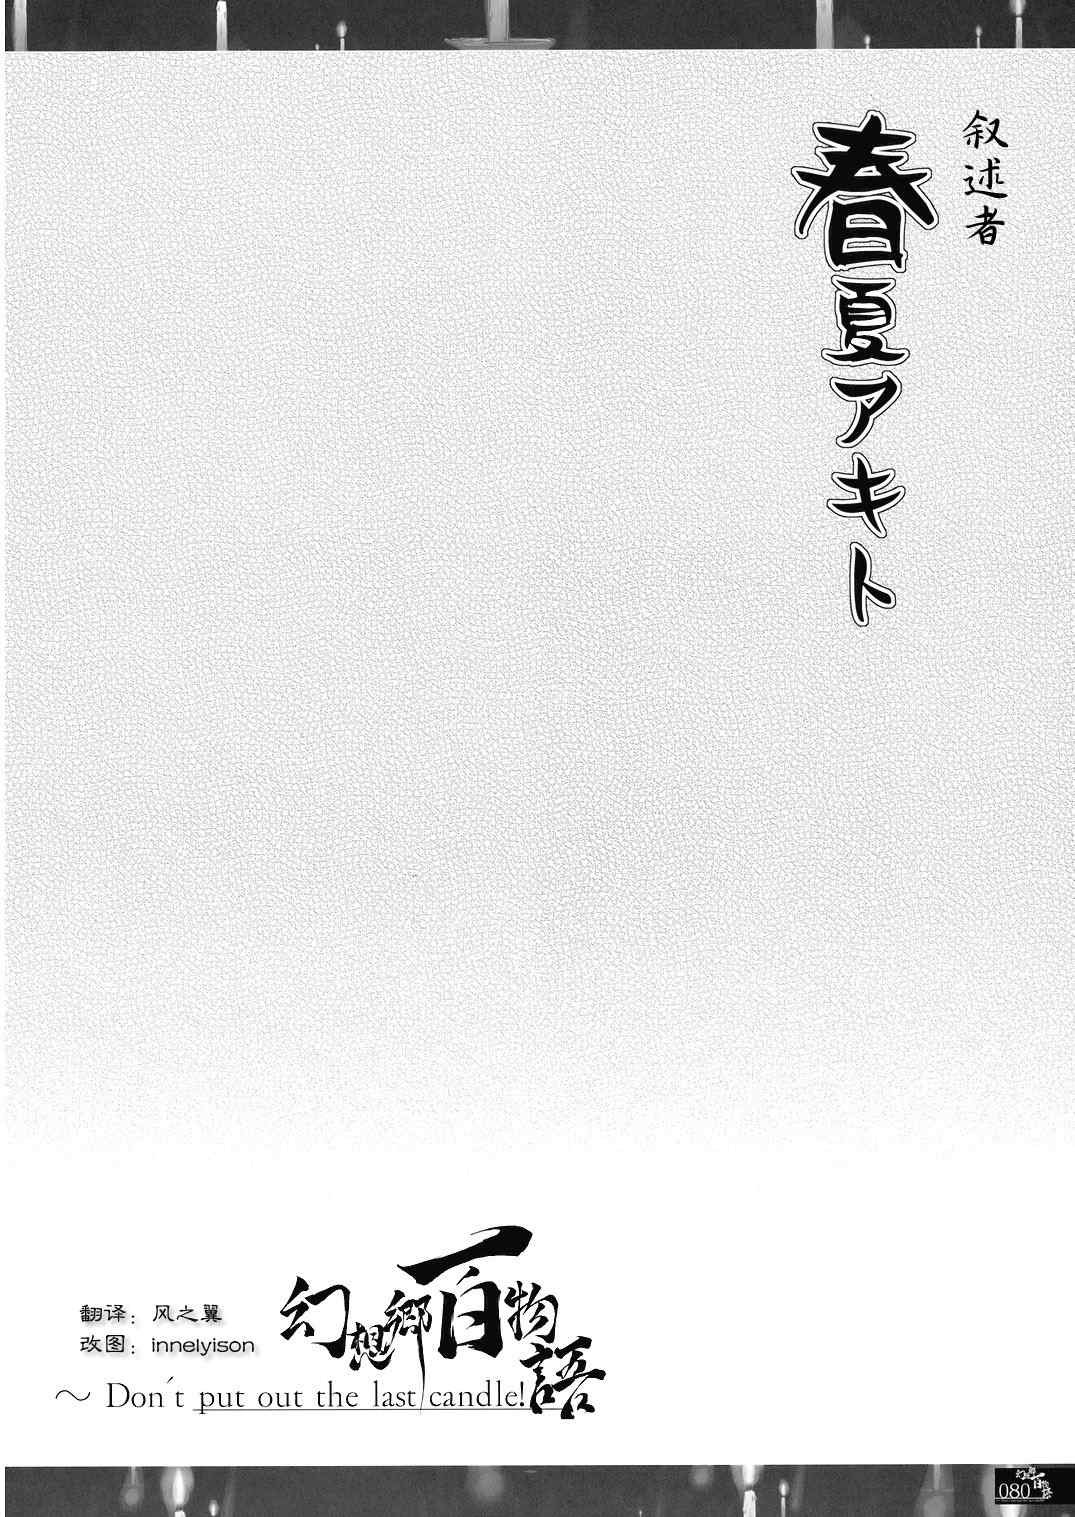 叙述者
春夏アキト
幻想郷百物語
～ Don´t put out the last candle!
翻译：风之翼
改图：innelyison
080